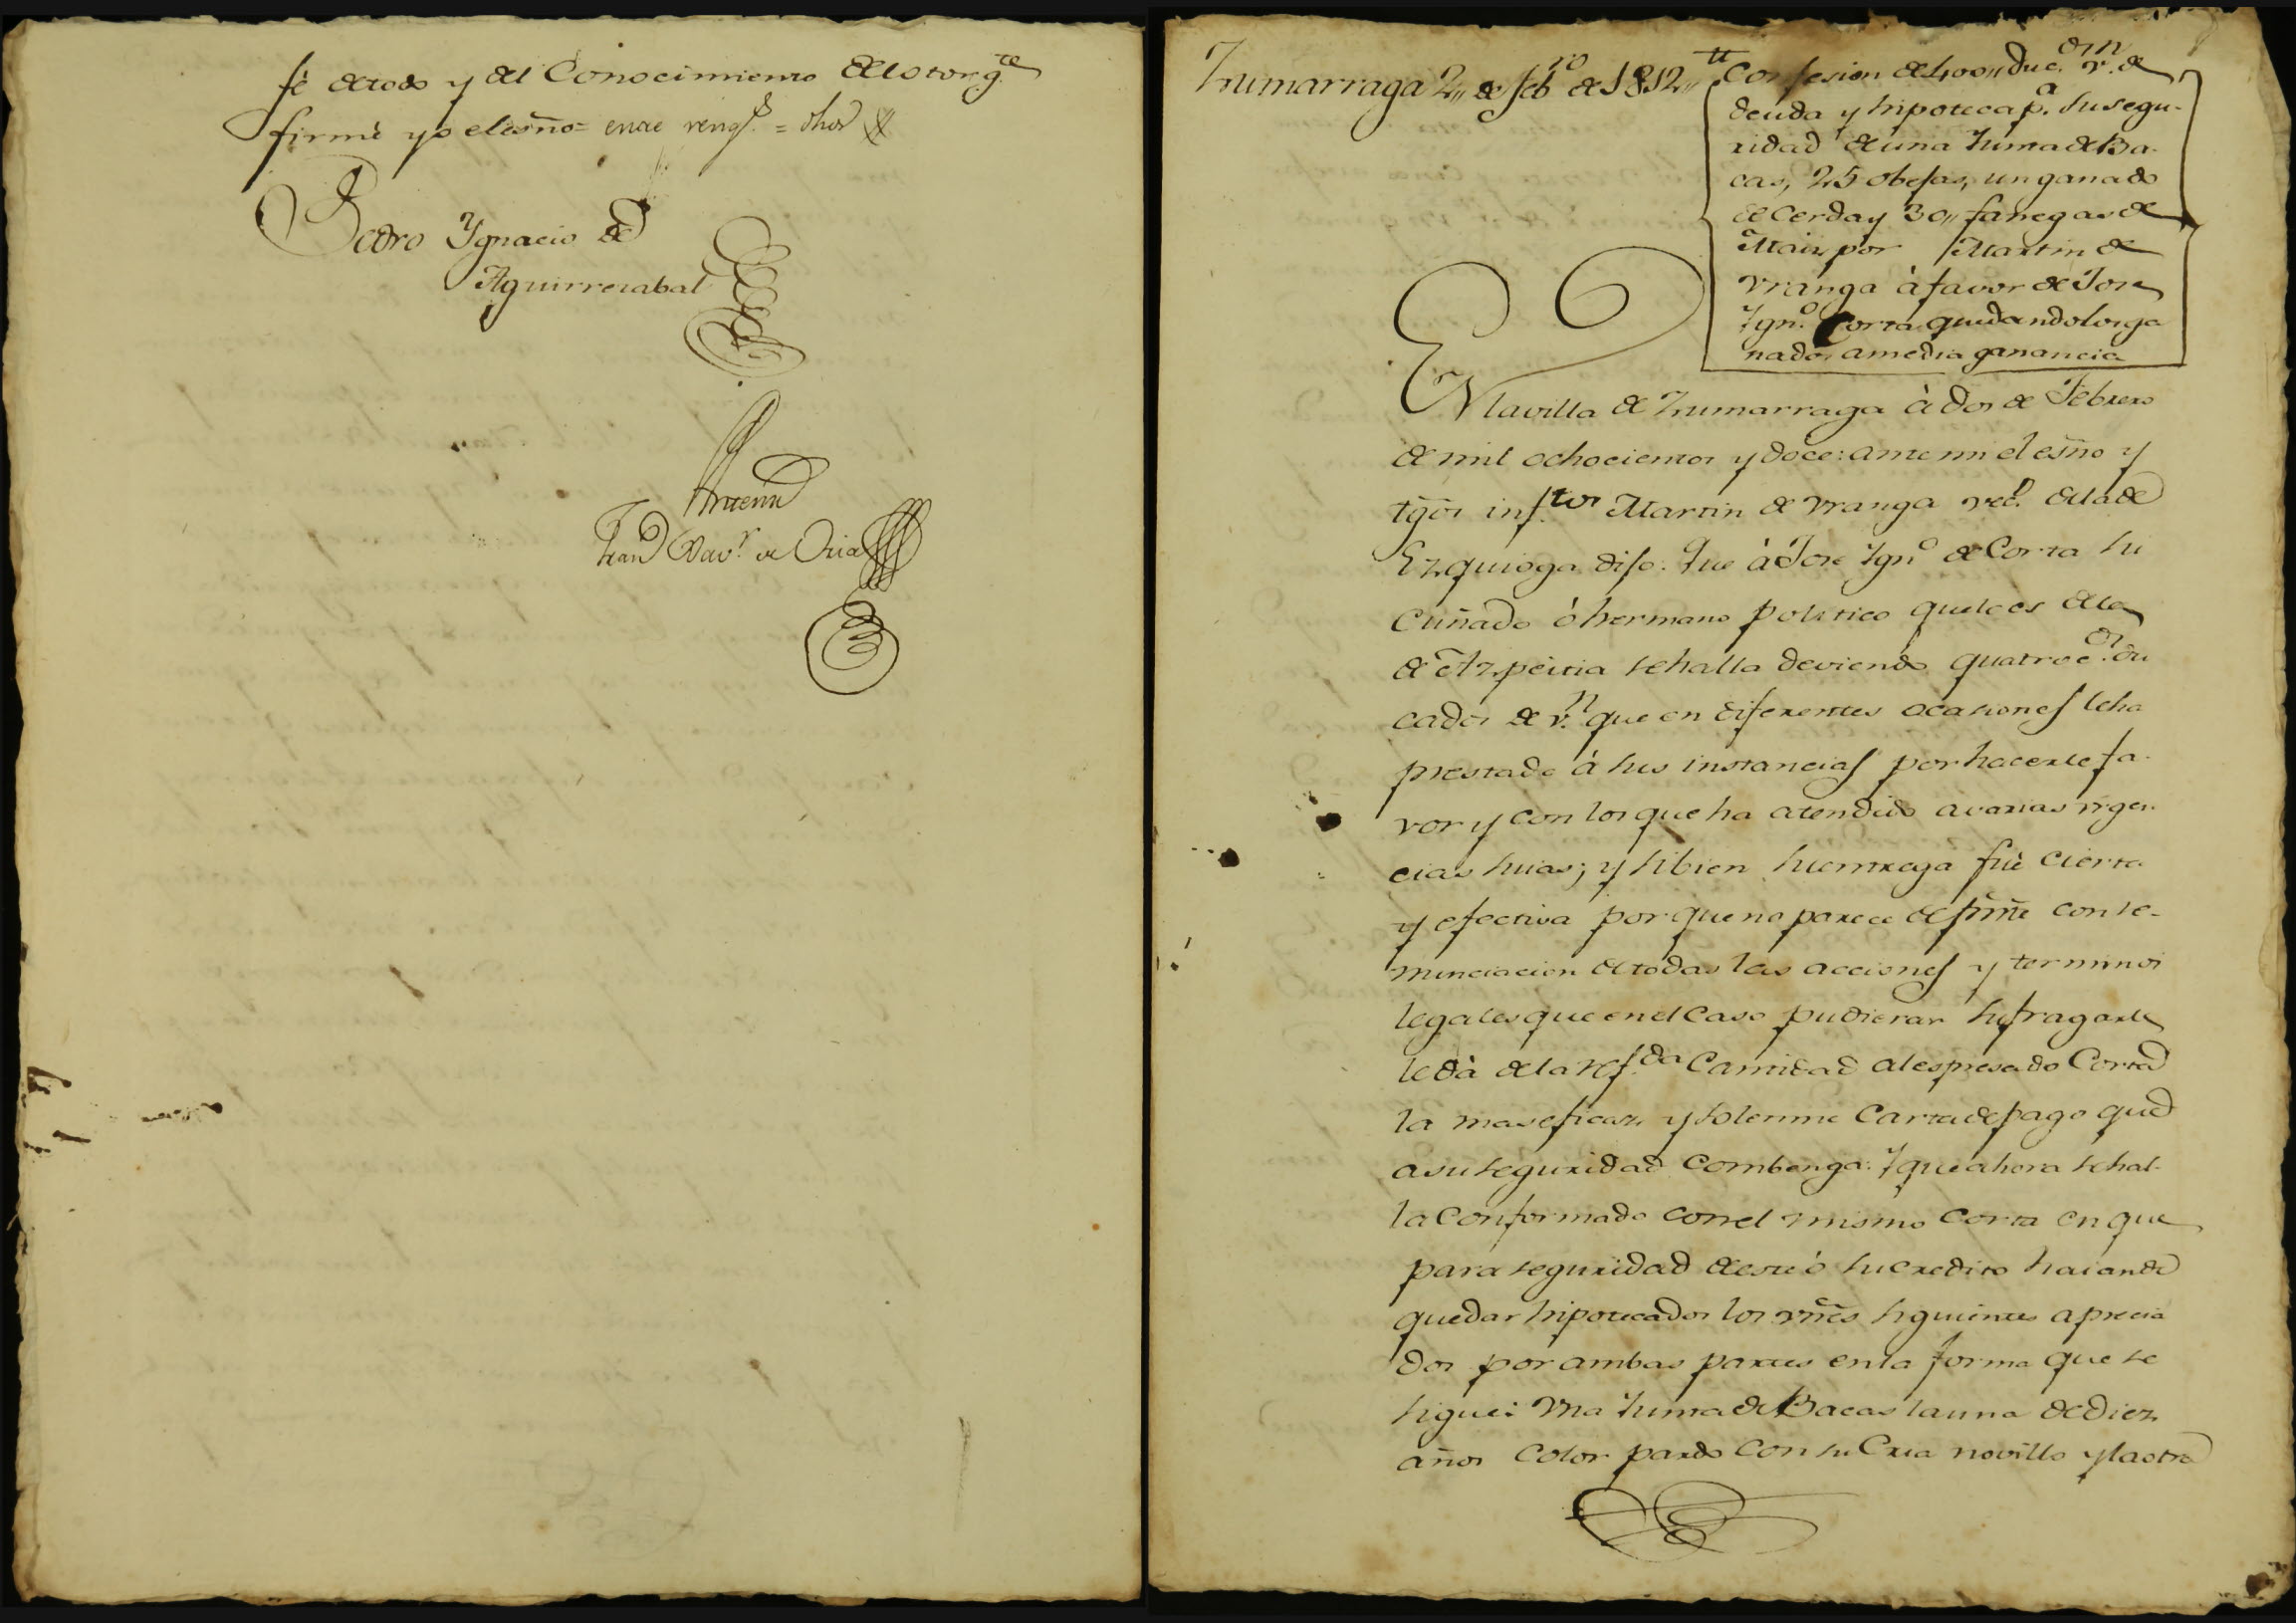 fè de todo y del Conocimiento del otorg.te
firmè yo el esño = entre reng.s = dhos
Pedro Ygnacio de
Aguirrezabal
Antemi
Fran.co Xav.r de Oria
Zumarraga 2,, de feb.ro de 1812,,
Confesion de 400,, duc.s v.n de
deuda y hipoteca p.a su segu-
ridad de una Yunta de Ba-
cas, 25 obejas, un ganado
de Cerda y 30,, fanegas de
Maiz por Martin de
Vranga à favor de Jose
Ygn.o Corta quedando los ga
nados a media ganancia
EN la villa de Zumarraga à dos de Febrero
de mil ochocientos y doce: ante mi el esño y
tgõs inf.tos Martin de Vranga vec.o de la de
Ezquioga dijo: Que à Jose Ygn.o de Corta su
Cuñado ò hermano politico que lo es de la
de Azpeitia se halla deviendo quatroc.os du
cados de v.n que en diferentes ocasiones le ha
prestado à sus instancias por hacerle fa-
vor y con los que ha atendido a varias vrgen
cias suias; y si bien su entrega fuè cierta
y efectiva por que no parece de pñte con re-
nunciacion de todas las acciones y terminos
legales que en el Caso pudieran sufragarle
le dà de la ref.da Cantidad al espresado Corta
la mas eficaz y solemne Carta de pago que
a su seguridad combenga: Y que ahora se hal-
la Conformado con el mismo Corta en que
para seguridad de este ò su credito haian de
quedar hipotecados los vñes siguientes aprecia
dos por ambas partes en la forma que se
sigue: Vna Yunta de Bacas la una de diez
años Color pardo Con su Cria novillo y la otra